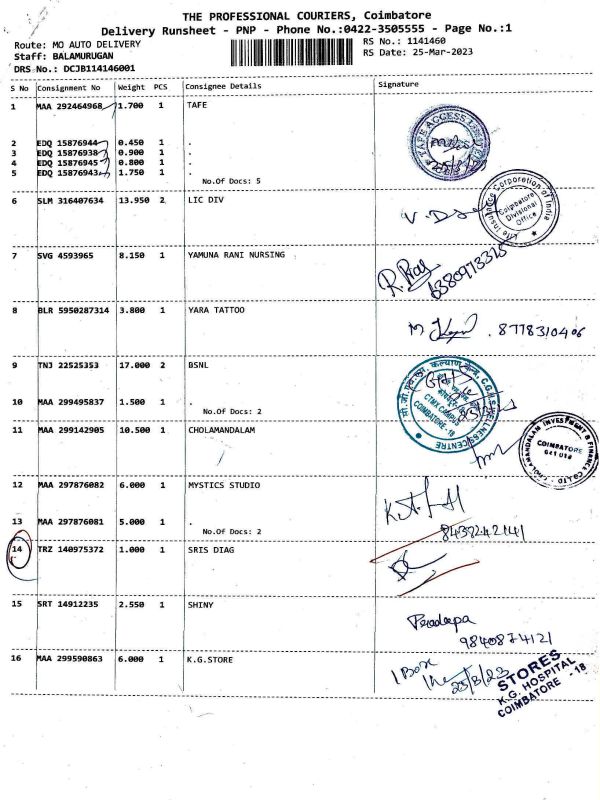 THE PROFESSIONAL COURIERS, Coimbatore
Delivery Runsheet - PNP - Phone No.:0422-3505555 - Page No.:1
Route: MO AUTO DELIVERY
RS No.: 1141460
Staff: BALAMURUGAN
RS Date: 25-Mar-2023
DRS No.: DCJB114146001
S No Consignment No Weight PCS Consignee Details Signature
1 MAA 292464968 1.700 1 TAFE
2 EDQ 15876944 0.450 1 .
3 EDQ 15876938 0.900 1 .
4 EDQ 15876945 0.800 1 .
5 EDQ 15876943 1.750 1 .
No.Of Docs: 5
6 SLM 316407634 13.950 2 LIC DIV
Life Insurance Corporation of India
Coimbatore
Divisional
Office
7 SVG 4593965 8.150 1 YAMUNA RANI NURSING
8 BLR 5950287314 3.800 1 YARA TATTOO
8778310406
9 TNJ 22525353 17.000 2 BSNL
10 MAA 299495837 1.500 1 .
No.Of Docs: 2
11 MAA 299142905 10.500 1 CHOLAMANDALAM
CHOLAMANDALAM INVESTMENT & FINANCE CO LTD
COIMBATORE
641 018
12 MAA 297876082 6.000 1 MYSTICS STUDIO
13 MAA 297876081 5.000 1 .
No.Of Docs: 2
14 TRZ 140975372 1.000 1 SRIS DIAG
15 SRT 14912235 2.550 1 SHINY
Pradeepa
9840874121
16 MAA 299590863 6.000 1 K.G.STORE
1 Box
25/3/23
STORES
K.G. HOSPITAL
COIMBATORE - 18